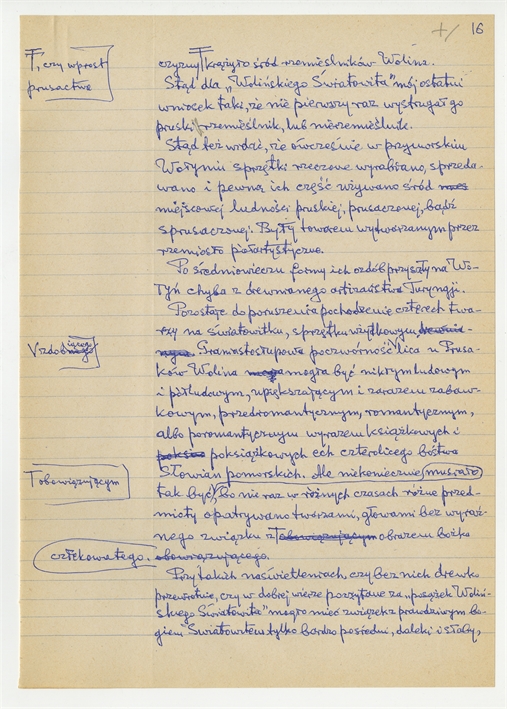 +/ 16
Γ, czy wprost
prusactwa
czyzny Γ krążyło śród rzemieślników Wolina.
Stąd dla „Wolińskiego Światowita" mój ostatni
wniosek taki, że nie pierwszy raz wystrugał go
pruski rzemieślnik, lub nierzemieślnik.
Stąd też widać, że ówcześnie w przymorskim
Wołyniu sprzętki rzeczowe wyrabiano, sprzeda-
wano i pewną ich część używano śród
miejscowej ludności pruskiej, prusaczonej, bądź
sprusaczonej. Były towarem wytwarzanym przez
rzemiosło półartystyczne.
Po średniowieczu formy ich ozdób przyszły na Wo-
łyń chyba z drewnianego artizaństwa Turyngji.
Pozostaje do poruszenia pochodzenie czterech twa-
rzy na światowitku, sprzętku użytkowym
V zdobiącego
Graniastosłupowa poczwórność V lica u Prusa-
ków Wolina mogła być nikłym ludowym
i półludowym, upiększającym i zarazem zabaw-
kowym, przedromantycznym, romantycznym,
albo poromantycznym wyrazem książkowych i
poksiążkowych ech czterolicego bóstwa
Słowian pomorskich. Ale niekoniecznie musiało
tak być, Bo nie raz w różnych czasach różne przed-
T obowiązującym
mioty opatrywano twarzami, głowami bez wyraź-
nego związku z T obowiązującym obrazem bożka
człekowatego. obowiązującego.
Przy takich naświetleniach, czy bez nich drewko
przewrotnie, czy w dobrej wierze poczytane za „posążek Woliń-
skiego Światowita" mogło mieć związek z prawdziwym bo-
giem Światowitem tylko bardzo pośredni, daleki i słaby,